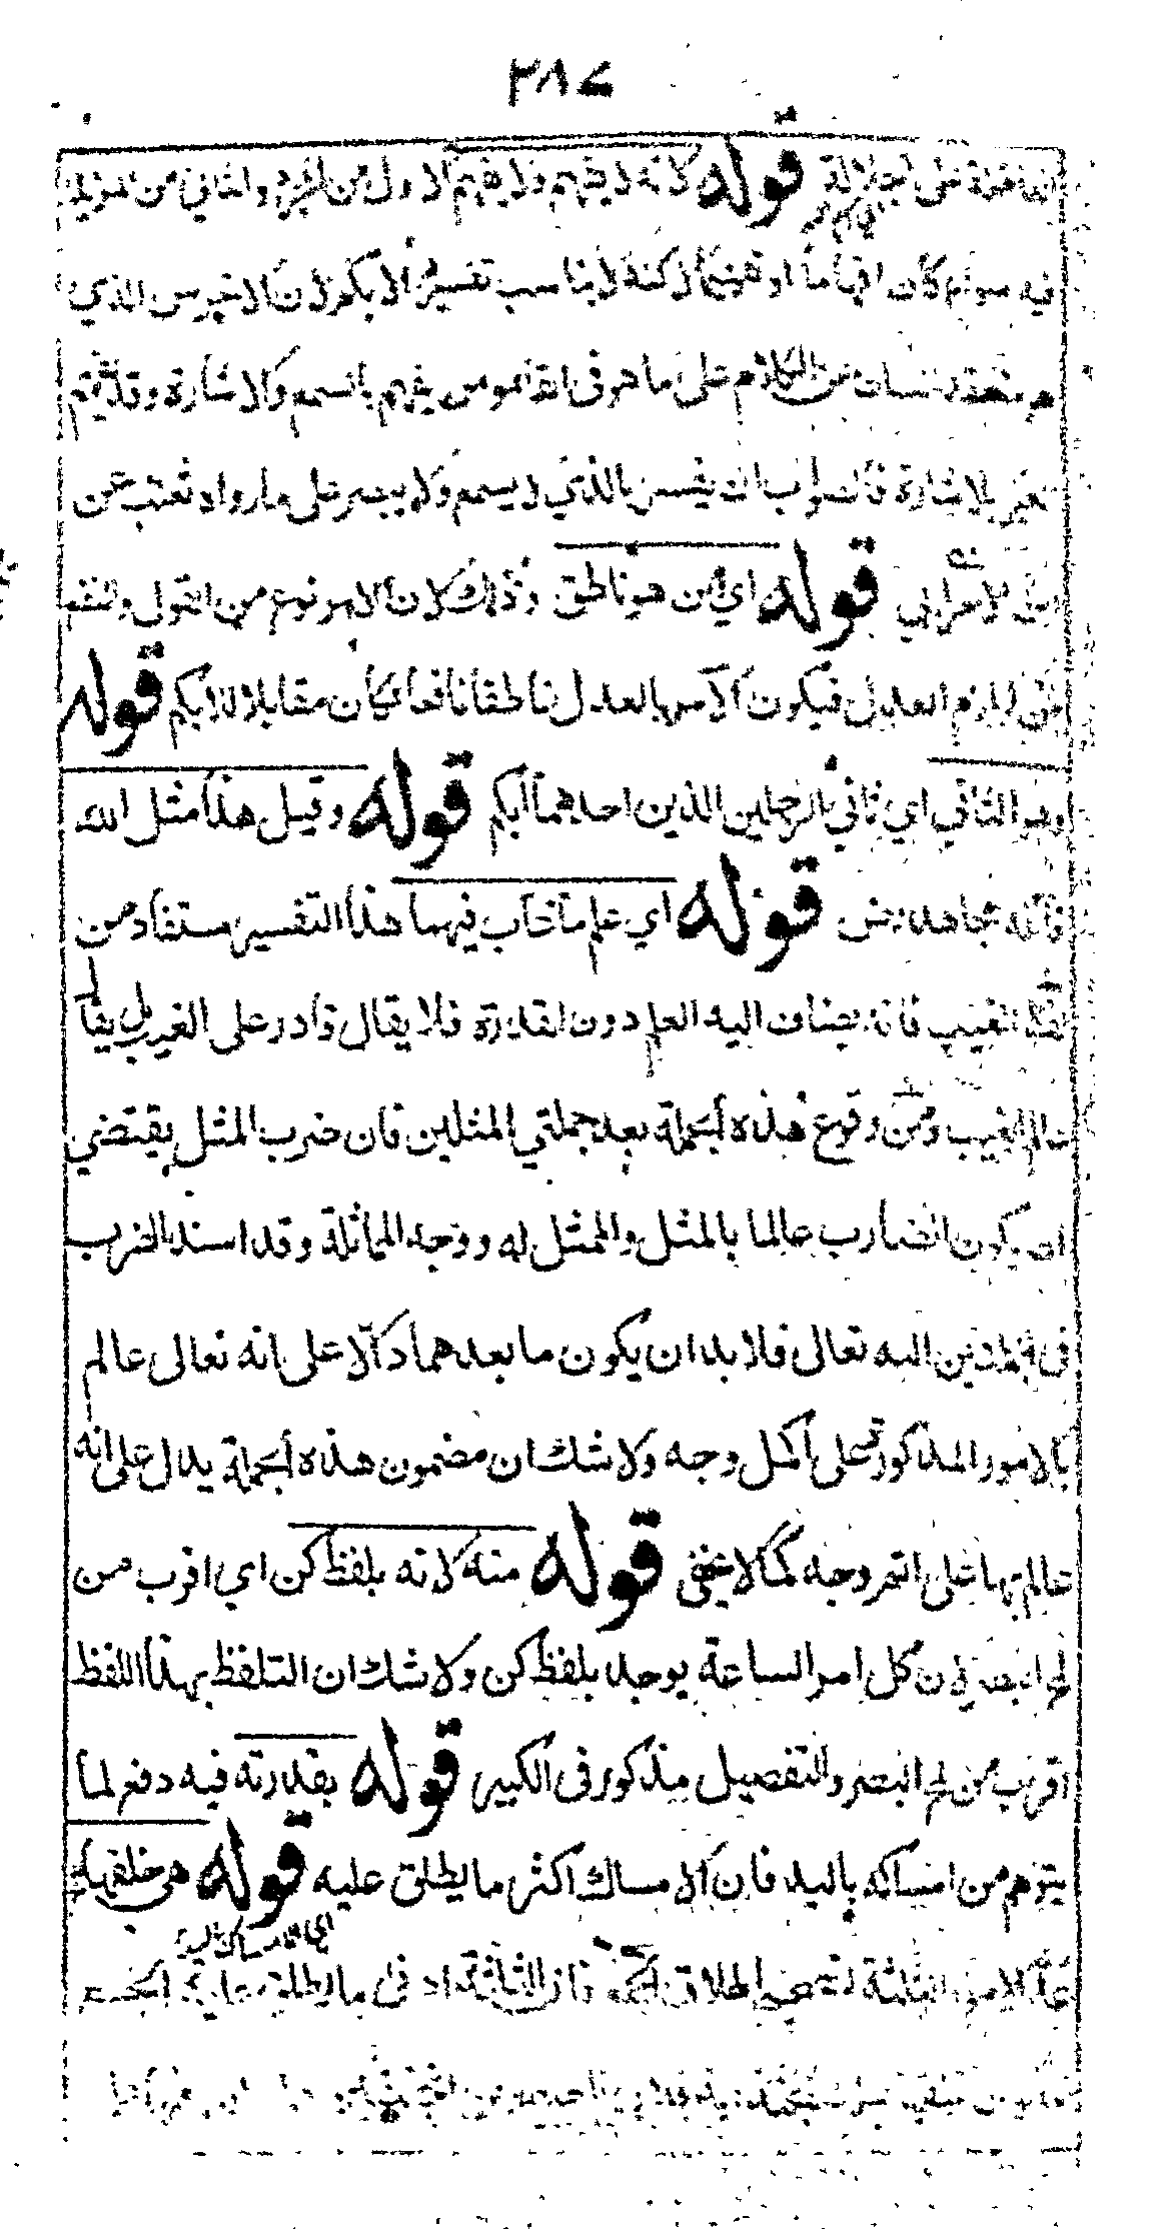 ٣٨٧
على الجلالة قوله لانه لا يفهم ولا يفهم الاول من المجرد والثاني من المزيد
فيه سواء كان افهاما او تفهيما لكنه لا يناسب تفسير الابكم لان الاخرس الذي
هو منعقد اللسان عن الكلام على ما هو في القاموس يفهم بالسمع والاشارة وقد يفهم
غيره بالاشارة فالصواب ان يفسر بالذي لا يسمع ولا يبصر على ما رواه ثعلب عن
ابن الاعرابي قوله اي من هو ناطق وذلك لان الامر نوع من القول والنفع
العدل فيكون الآمر بالعدل ناطقا نافعا فكان مقابلا للابكم قوله
وهو الثاني اي ثاني الرجلين الذين احدهما ابكم قوله وقيل هذا مثل الله
قائله مجاهد قوله اي علم ما غاب فيهما هذا التفسير مستفاد من
الغيب فانه يضاف اليه العلم دون القدرة فلا يقال قادر على الغيب بل يقال
عالم الغيب ومن وقوع هذه الجملة بعد جملتي المثلين فان ضرب المثل يقتضي
ان يكون الضارب عالما بالمثل والممثل له ووجه المماثلة وقد اسند الضرب
في الجملتين اليه تعالى فلا بد ان يكون ما بعدهما دالا على انه تعالى عالم
بالامور المذكورة على اكمل وجه ولا شك ان مضمون هذه الجملة يدل على انه
عالم بها على اتم وجه كما لا يخفى قوله منه لانه بلفظ كن اي اقرب من
لمح البصر لان كل امر الساعة يوجد بلفظ كن ولا شك ان التلفظ بهذا اللفظ
اقرب من لمح البصر والتفصيل مذكور في الكبير قوله بقدرته فيه دفع لما
يتوهم من امساكه باليد فان الامساك اكثر ما يطلق عليه قوله هي خلقها
الامور الثلثة لتصحيح اطلاق الجمع فان الثلثة ادنى ما يطلق عليه الجمع